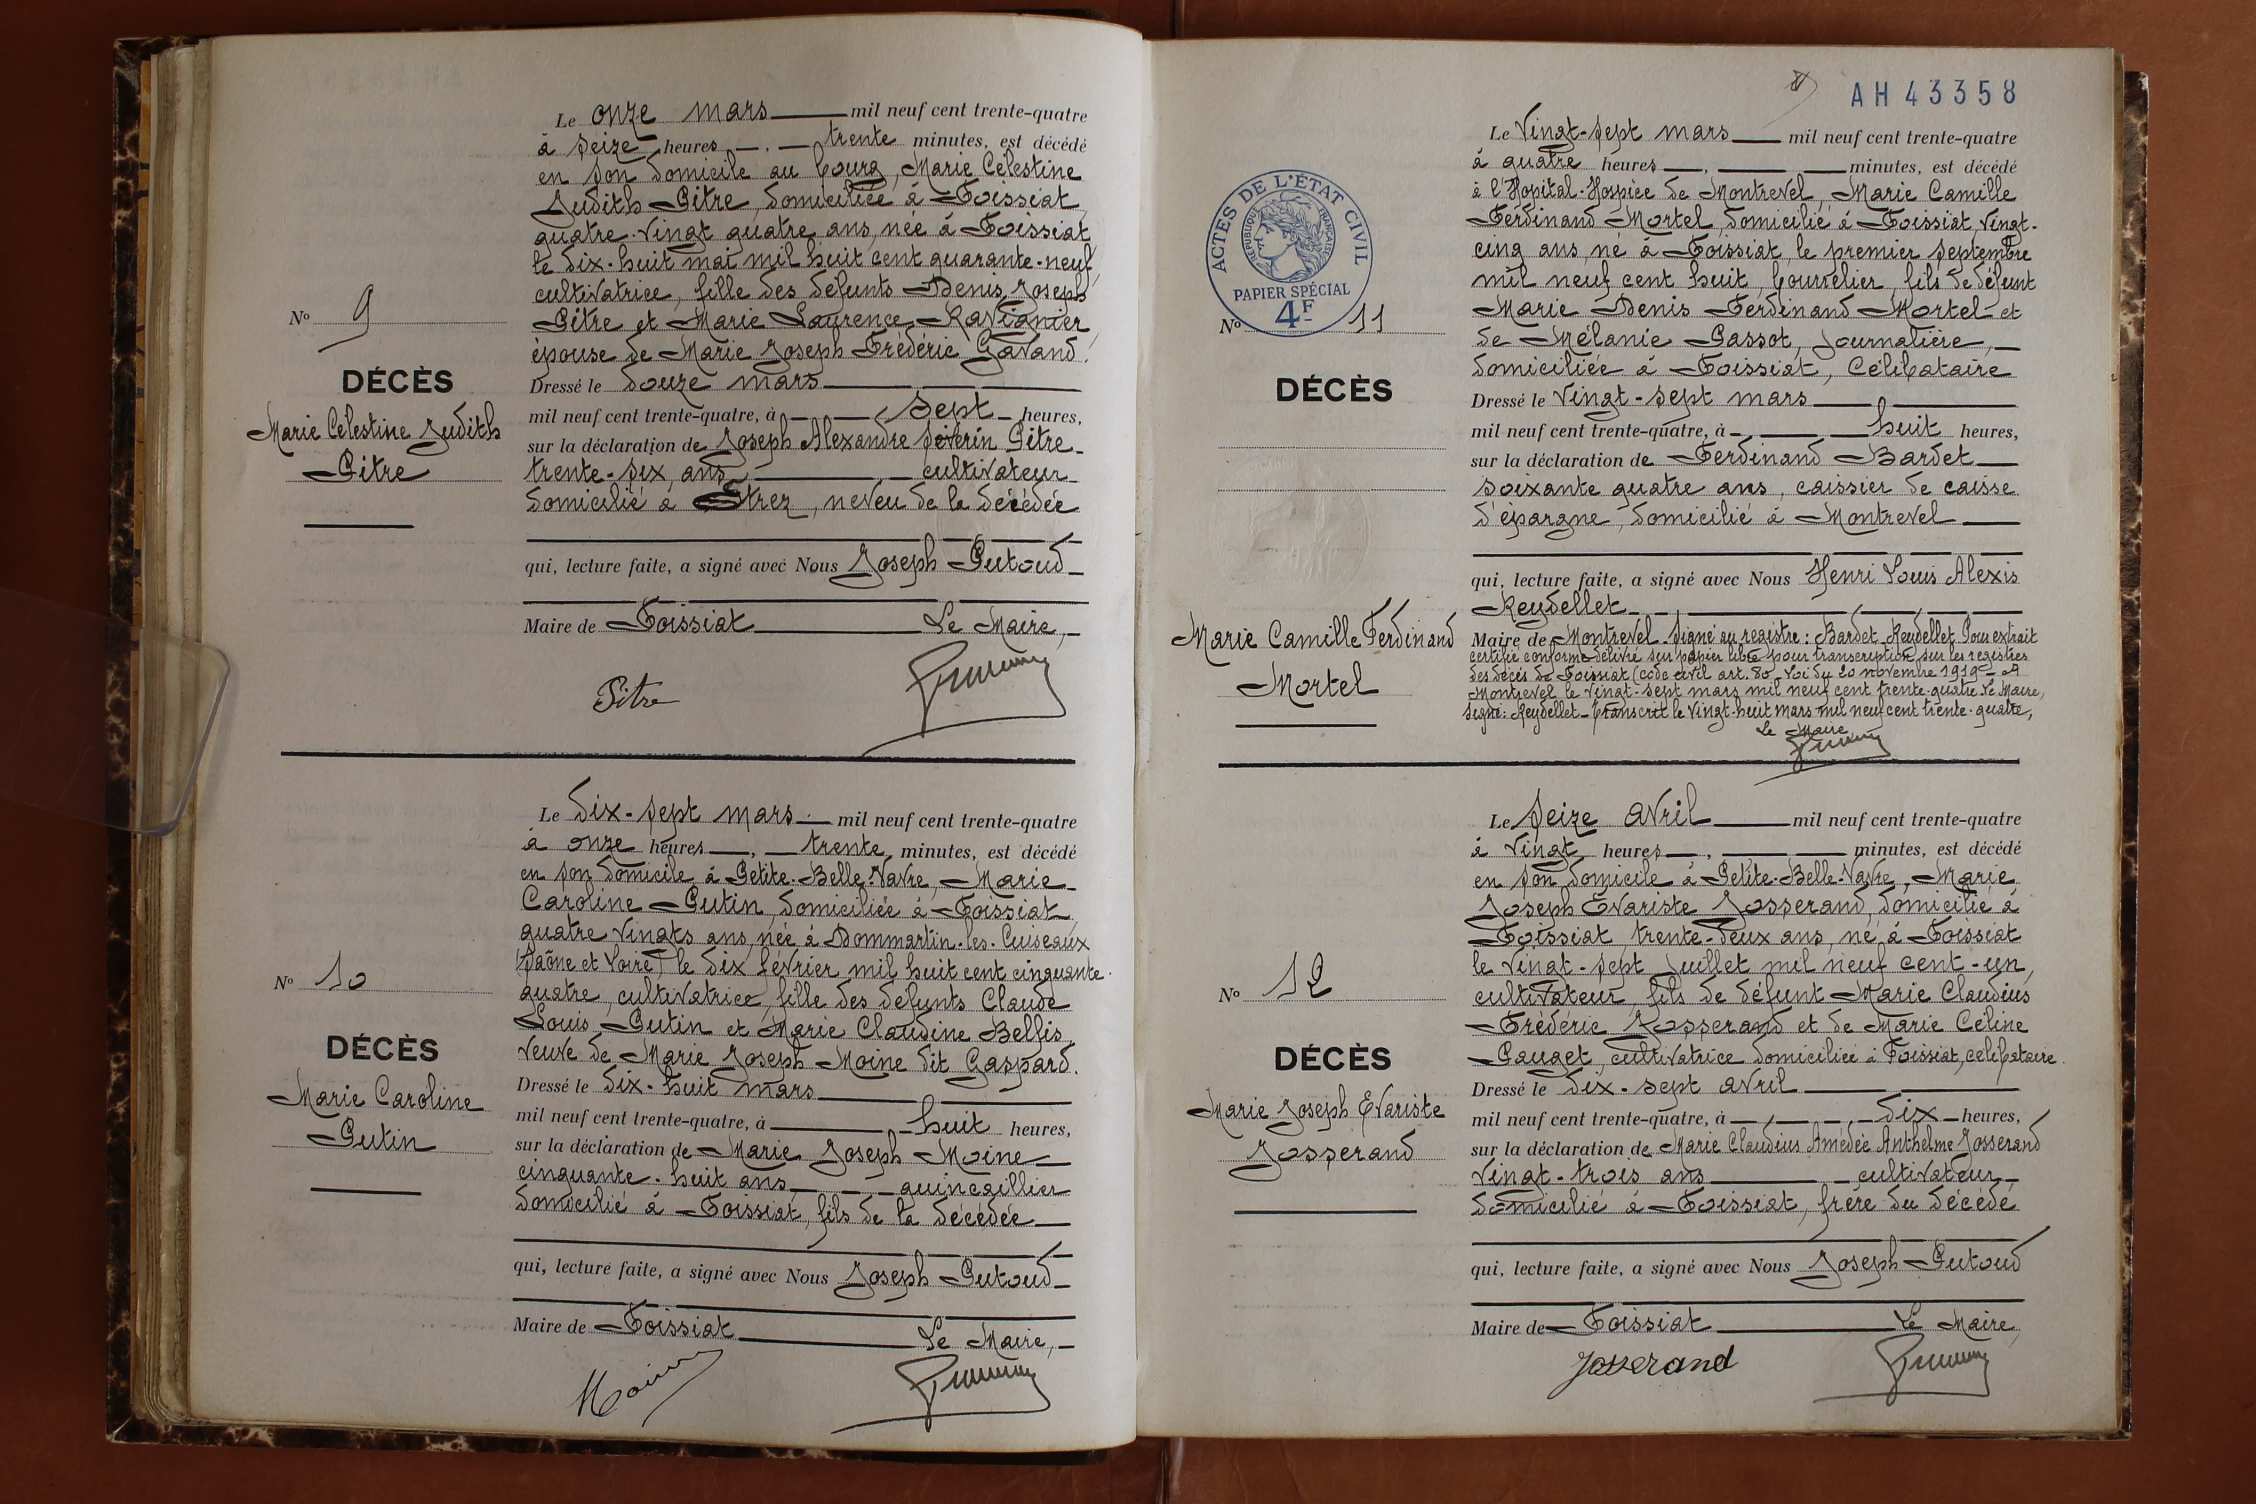 Le onze mars mil neuf cent trente-quatre
à seize heures trente minutes, est décédé
en son domicile au bourg, Marie Célestine
Judith Pitre, domiciliée à Foissiat,
quatre-vingt quatre ans, née à Foissiat
le dix-huit mai mil huit cent quarante-neuf,
cultivatrice, fille des défunts Denis Joseph
Pitre et Marie Laurence Ravignier
épouse de Marie Joseph Frédéric Gavand.
Nº 9
DÉCÈS
Marie Célestine Judith
Pitre
Dressé le douze mars
mil neuf cent trente-quatre, à sept heures,
sur la déclaration de Joseph Alexandre Séverin Pitre
trente-six ans cultivateur
domicilié à Etrez, neveu de la décédée
qui, lecture faite, a signé avec Nous Joseph Putoud
Maire de Foissiat Le Maire,
Pitre
Le dix-sept mars mil neuf cent trente-quatre
à onze heures, trente minutes, est décédé
en son domicile à Petite-Belle-Vavre, Marie
Caroline Putin, domiciliée à Foissiat,
quatre vingts ans, née à Dommartin-les-Cuiseaux
(Saône et Loire) le dix février mil huit cent cinquante-
quatre, cultivatrice, fille des défunts Claude
Louis Putin et Marie Claudine Bellis,
veuve de Marie Joseph Moine dit Gaspard.
Nº 10
DÉCÈS
Marie Caroline
Putin
Dressé le dix-huit mars
mil neuf cent trente-quatre, à huit heures,
sur la déclaration de Marie Joseph Moine
cinquante-huit ans quincaillier
domicilié à Foissiat, fils de la décédée
qui, lecture faite, a signé avec Nous Joseph Putoud
Maire de Foissiat Le Maire,
Moine
AH 43358
ACTES DE L'ÉTAT CIVIL
RÉPUBLIQUE FRANÇAISE
PAPIER SPÉCIAL
4F
Le vingt-sept mars mil neuf cent trente-quatre
à quatre heures, minutes, est décédé
à l'Hopital-Hospice de Montrevel, Marie Camille
Ferdinand Mortel, domicilié à Foissiat, vingt-
cinq ans, né à Foissiat, le premier septembre
mil neuf cent huit, bourrelier, fils de défunt
Marie Denis Ferdinand Mortel et
de Mélanie Passot, journalière,
domiciliée à Foissiat, célibataire
Nº 11
DÉCÈS
Marie Camille Ferdinand
Mortel
Dressé le vingt-sept mars
mil neuf cent trente-quatre, à huit heures,
sur la déclaration de Ferdinand Bardet
soixante quatre ans, caissier de caisse
d'épargne, domicilié à Montrevel
qui, lecture faite, a signé avec Nous Henri Louis Alexis
Reydellet
Maire de Montrevel. Signé au registre: Bardet Reydellet Pour extrait
certifié conforme délivré sur papier libre pour transcription sur les registres
des décès de Foissiat (code civil art. 80 Loi du 20 novembre 1919 - A
Montrevel le vingt-sept mars mil neuf cent trente-quatre Le Maire,
signé: Reydellet - Transcrit le vingt-huit mars mil neuf cent trente-quatre,
Le Maire
Le seize avril mil neuf cent trente-quatre
à vingt heures, minutes, est décédé
en son domicile à Petite-Belle-Vavre, Marie
Joseph Evariste Josserand, domicilié à
Foissiat, trente-deux ans, né à Foissiat
le vingt-sept juillet mil neuf cent-un,
cultivateur, fils de défunt Marie Claudius
Frédéric Josserand et de Marie Céline
Pauget, cultivatrice domiciliée à Foissiat, célibataire.
Nº 12
DÉCÈS
Marie Joseph Evariste
Josserand
Dressé le dix-sept avril
mil neuf cent trente-quatre, à dix heures,
sur la déclaration de Marie Claudius Amédée Anthelme Josserand
vingt-trois ans cultivateur
domicilié à Foissiat, frère du décédé
qui, lecture faite, a signé avec Nous Joseph Putoud
Maire de Foissiat Le Maire,
Josserand